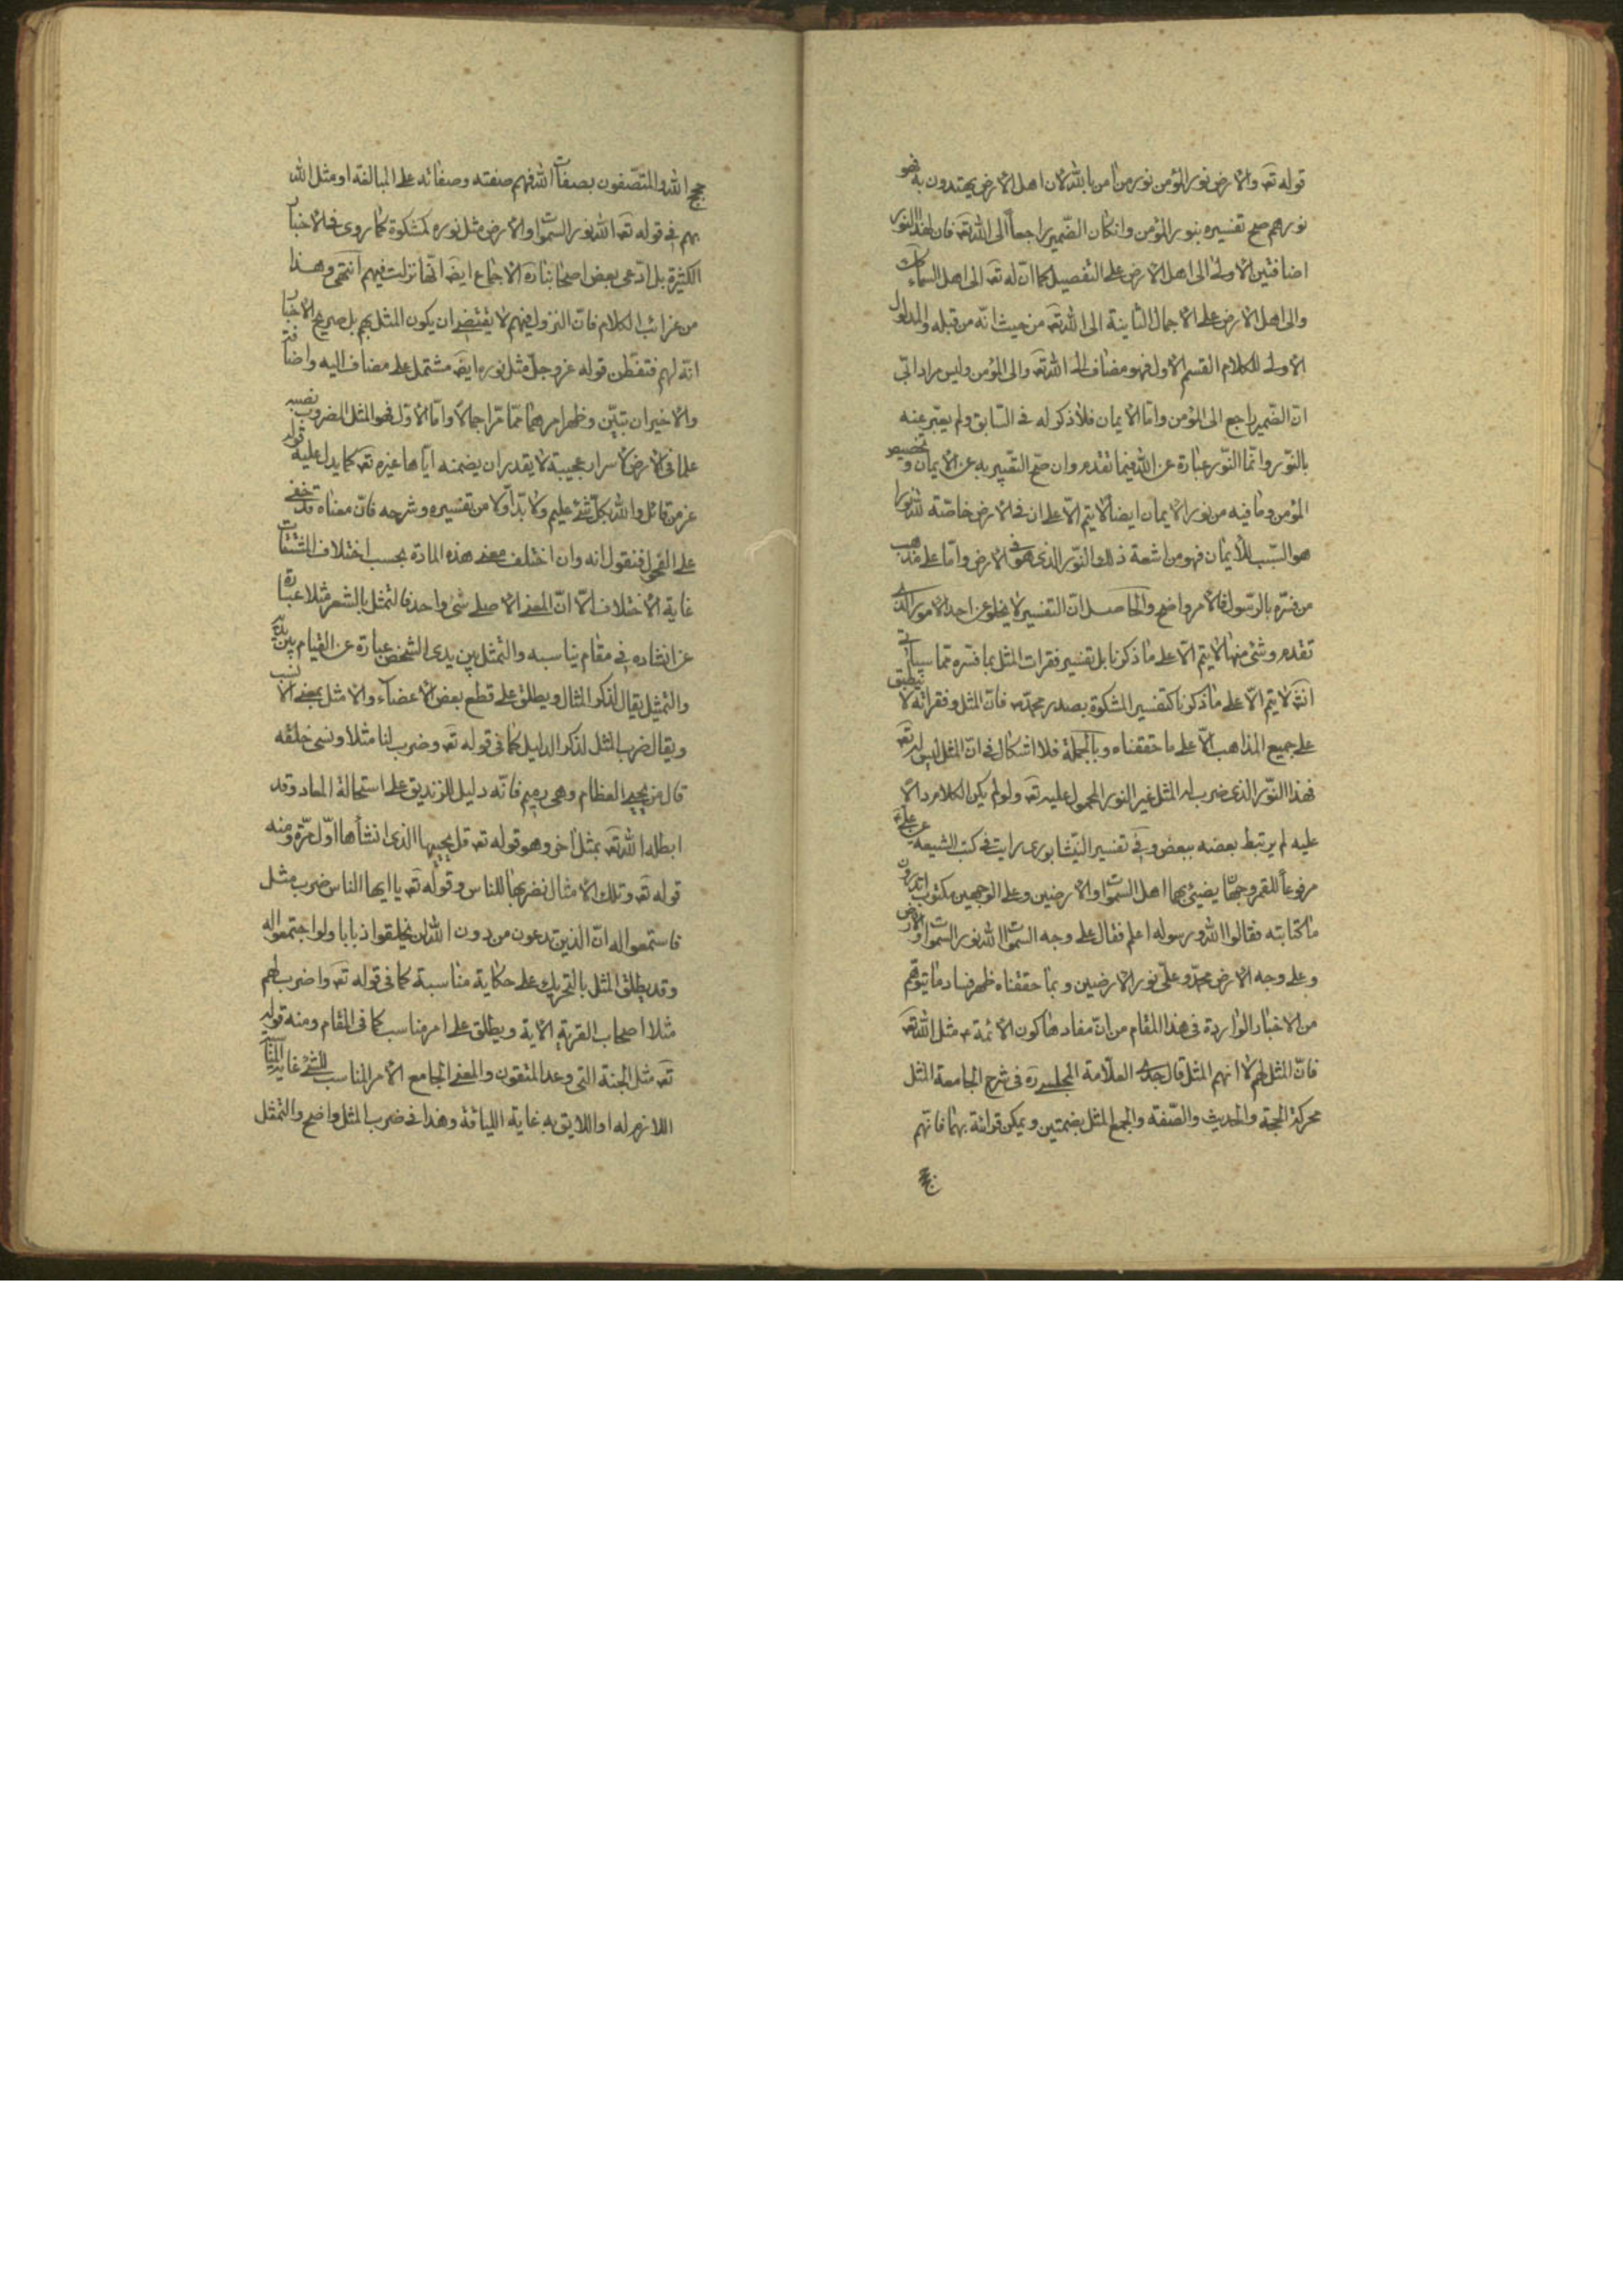 قوله تعه والارض نور المؤمن نور من امن بالله لان اهل الارض يهتدون به فهو
نورهم صح تفسيره بنور المؤمن وانكان الضمير راجعاً الى الله تعه فان لهذا النور
اضافتين الاولى الى اهل الارض على التفصيل كما ان له تعه الى اهل السماء
والى اهل الارض على الاجمال الثانية الى الله تعه من حيث انه من قبله والمدلول
الاولى للكلام القسم الاول فهو مضاف الى الله تعه والى المؤمن وليس مراد ابي
ان الضمير راجع الى المؤمن واما الايمان فلا ذكر له في السابق ولم يعبر عنه
بالنور وانما النور عبارة عن الله فيما تقدم وان صح التعبير به عن الايمان و تخصيص
المؤمن وما فيه من نور الايمان ايضا لا يتم الا على ان في الارض خاصة لله نورا
هو السبب للايمان فهو من اشعة ذلك النور الذى هو في الارض واما على مذهب
من فسره بالرسول فالامر واضح والحاصل ان التفسير لا يخلو عن احد الامور التى
تقدم وشئ منها لا يتم الا على ما ذكرنا بل تفسير فقرات المثل بما فسره مما سياتى
انه لا يتم الا على ما ذكرنا كتفسير المشكوة بصدر محمد ص فان المثل وفقراته لا تنطبق
على جميع المذاهب الا على ما حققناه وبالجملة فلا اشكال في ان المثل ليس له تعه
فهذا النور الذى ضرب له المثل غير النور المحمول عليه تعه ولو لم يكن الكلام دالا
عليه لم يرتبط بعضه ببعض وفي تفسير النيشابورى رايت في كتب الشيعة عن على ع
مرفوعاً للقمر وجهان يضيئ بهما اهل السموات والارضين وعلى الوجهين مكتوب اتدرون
ما كتابته فقالوا الله ورسوله اعلم فقال على وجه السموات الله نور السموات والارض
وعلى وجه الارض محمد وعلى نور الارضين وبما حققناه ظهر فساد ما يتوهم
من الاخبار الواردة في هذا المقام من ان مفادها كون الائمة ع مثل الله تعه
فان المثل لهم لا انهم المثل قال جدى العلامة المجلسى ره في شرح الجامعة المثل
محركة الحجة والحديث والصفة والجمع المثل بضمتين ويمكن قرائة بهما فانهم
حجج
حجج الله والمتصفون بصفات الله فهم صفته وصفاته على المبالغة او مثل الله
بهم في قوله تعه الله نور السموات والارض مثل نوره كمشكوة كما روى في الاخبار
الكثيرة بل ادعى بعض اصحابنا ره الاجماع ايضه انها نزلت فيهم انتهى وهذا
من غرائب الكلام فان النزول فيهم لا يقتضى ان يكون المثل بهم بل صريح الاخبار
انه لهم فتفطن قوله عز وجل مثل نوره ايضه مشتمل على مضاف اليه واضافة
والاخيران تبين وظهر امرهما مما مر اجمالا واما الاول فهو المثل المضروب نصبه
علما في الارض لاسرار عجيبة لا يقدر ان يضمنه اياها غيره تعه كما يدل عليه قوله
عز من قائل والله بكل شئ عليم ولا بد اولا من تفسيره وشرحه فان معناه قد تخفى
على الفحول فنقول انه وان اختلف معنى هذه المادة بحسب اختلاف المشتقات
غاية الاختلاف الا ان المعنى الاصلى شئ واحد فالتمثل بالشعر مثلا عبارة
عن انشاده في مقام يناسبه والتمثل بين يدى الشخص عبارة عن القيام بين يديه
والتمثيل يقال لذكر المثال ويطلق على قطع بعض الاعضاء والامثل بمعنى الانسب
ويقال ضرب المثل لذكر الدليل كما في قوله تعه وضرب لنا مثلا ونسى خلقه
قال من يحيى العظام وهى رميم فانه دليل للزنديق على استحالة المعاد وقد
ابطله الله تعه بمثل اخر وهو قوله تعه قل يحييها الذى انشأها اول مرة ومنه
قوله تعه وتلك الامثال نضربها للناس وقوله تعه يا ايها الناس ضرب مثل
فاستمعوا له ان الذين تدعون من دون الله لن يخلقوا ذبابا ولو اجتمعوا له
وقد يطلق المثل بالتحريك على حكاية مناسبة كما في قوله تعه واضرب لهم
مثلا اصحاب القرية الاية ويطلق على امر مناسب كما في المقام ومنه قوله
تعه مثل الجنة التى وعد المتقون والمعنى الجامع الامر المناسب للشئ غاية المناسبة
اللازم له او اللايق به غاية اللياقة وهذا في ضرب المثل واضح والتمثل